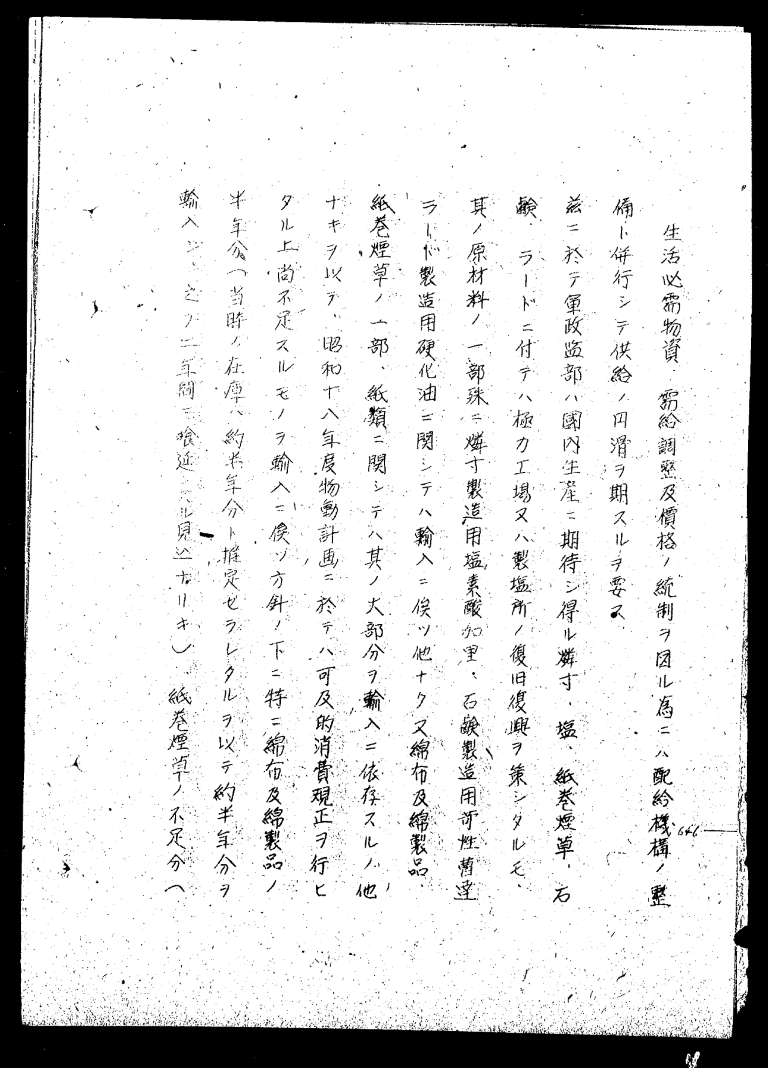 生活必需物資、需給調整及價格ノ統制ヲ図ル為ニハ配給機構ノ整
備ト併行シテ供給ノ円滑ヲ期スルヲ要ス
茲ニ於テ軍政監部ハ國内生産ニ期待シ得ル燐寸、塩、紙巻煙草、石
鹸、ラードニ付テハ極力工場又ハ製塩所ノ復旧復興ヲ策シタルモ、
其ノ原材料ノ一部殊ニ燐寸製造用塩素酸加里、石鹸製造用苛性曹達
ラード製造用硬化油ニ関シテハ輸入ニ俟ツ他ナク又綿布及綿製品
紙巻煙草ノ一部、紙類ニ関シテハ其ノ大部分ヲ輸入ニ依存スルノ他
ナキヲ以テ、昭和十八年度物動計画ニ於テハ可及的消費規正ヲ行ヒ
タル上尚不足スルモノヲ輸入ニ俟ツ方針ノ下ニ特ニ綿布及綿製品ノ
半年分(当時ノ在庫ハ約半年分ト推定セラレタルヲ以テ約半年分ヲ
輸入シ、之ヲ二年間ニ喰延スル見込ナリキ)、紙巻煙草ノ不足分(
646